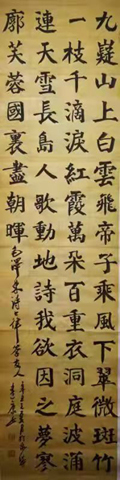 九嶷山上白雲飛帝子乘風下翠微斑竹
一枝千滴淚紅霞萬朵百重衣洞庭波涌
連天雪長島人歌動地詩我欲因之夢寥
廓芙蓉國裏盡朝暉
毛澤東詩七律答友人